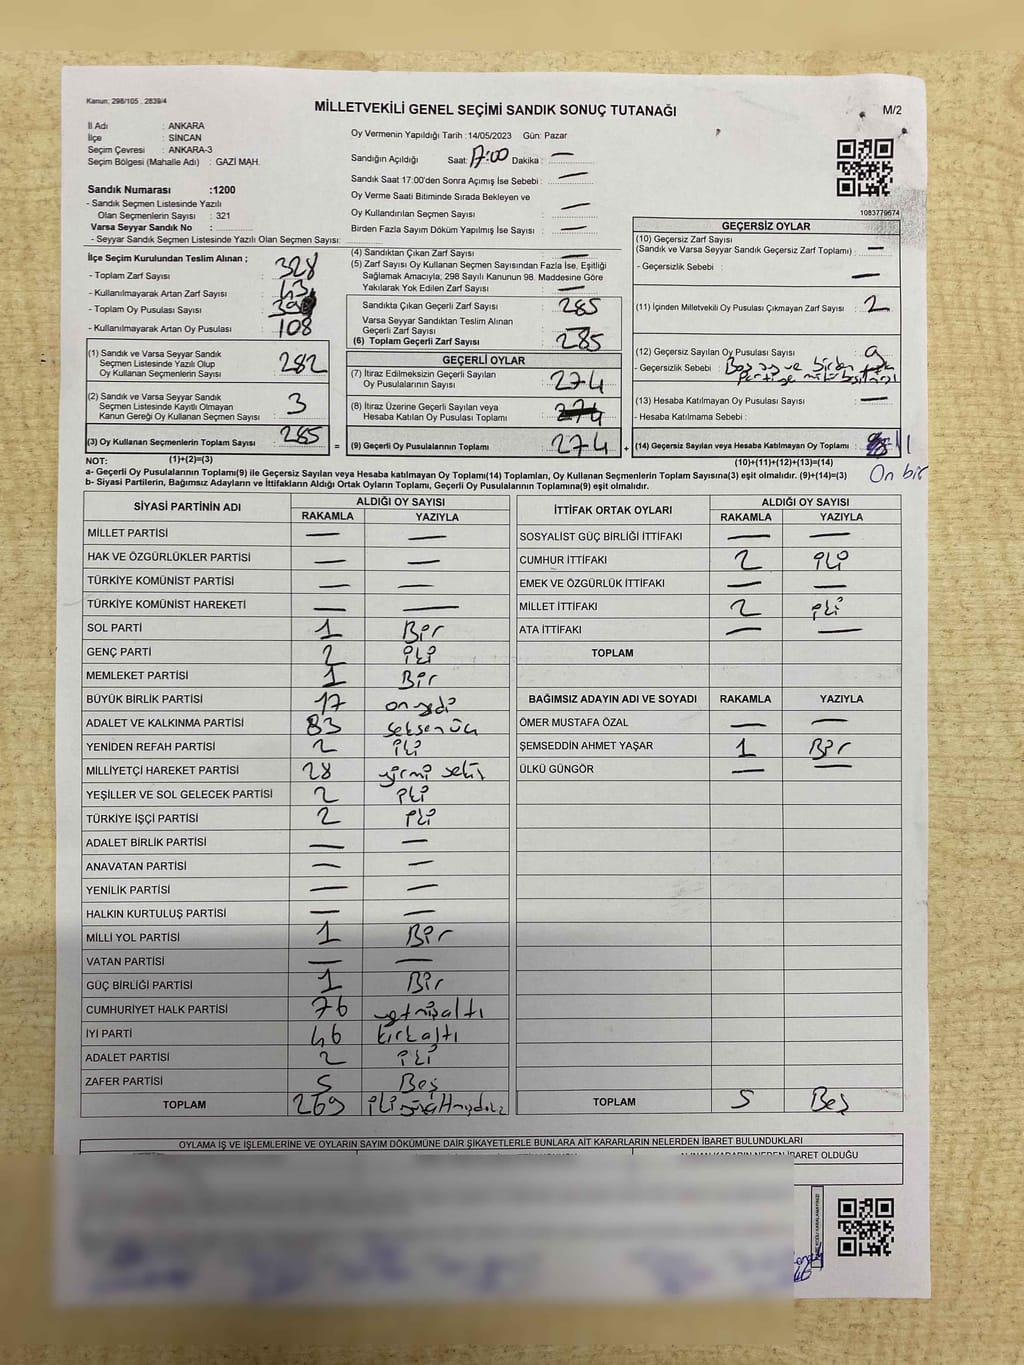 Kanun: 298/105 , 2839/4
MİLLETVEKİLİ GENEL SEÇİMİ SANDIK SONUÇ TUTANAĞI
M/2
İl Adı : ANKARA
İlçe : SİNCAN
Seçim Çevresi : ANKARA-3
Seçim Bölgesi (Mahalle Adı) : GAZİ MAH.
Sandık Numarası :1200
- Sandık Seçmen Listesinde Yazılı
Olan Seçmenlerin Sayısı : 321
Varsa Seyyar Sandık No :
- Seyyar Sandık Seçmen Listesinde Yazılı Olan Seçmen Sayısı:
Oy Vermenin Yapıldığı Tarih :14/05/2023 Gün: Pazar
Sandığın Açıldığı Saat: 17:00 Dakika : —
Sandık Saat 17:00'den Sonra Açımış İse Sebebi : —
Oy Verme Saati Bitiminde Sırada Bekleyen ve
Oy Kullandırılan Seçmen Sayısı : —
Birden Fazla Sayım Döküm Yapılmış İse Sayısı : —
1083779674
İlçe Seçim Kurulundan Teslim Alınan ;
- Toplam Zarf Sayısı : 328
- Kullanılmayarak Artan Zarf Sayısı : 43
- Toplam Oy Pusulası Sayısı :
- Kullanılmayarak Artan Oy Pusulası : 108
(1) Sandık ve Varsa Seyyar Sandık
Seçmen Listesinde Yazılı Olup
Oy Kullanan Seçmenlerin Sayısı : 282
(2) Sandık ve Varsa Seyyar Sandık
Seçmen Listesinde Kayıtlı Olmayan
Kanun Gereği Oy Kullanan Seçmen Sayısı : 3
(3) Oy Kullanan Seçmenlerin Toplam Sayısı : 285
(1)+(2)=(3)
(4) Sandıktan Çıkan Zarf Sayısı : —
(5) Zarf Sayısı Oy Kullanan Seçmen Sayısından Fazla İse, Eşitliği
Sağlamak Amacıyla; 298 Sayılı Kanunun 98. Maddesine Göre
Yakılarak Yok Edilen Zarf Sayısı : —
Sandıkta Çıkan Geçerli Zarf Sayısı : 285
Varsa Seyyar Sandıktan Teslim Alınan
Geçerli Zarf Sayısı : —
(6) Toplam Geçerli Zarf Sayısı : 285
GEÇERLİ OYLAR
(7) İtiraz Edilmeksizin Geçerli Sayılan
Oy Pusulalarının Sayısı : 274
(8) İtiraz Üzerine Geçerli Sayılan veya
Hesaba Katılan Oy Pusulası Toplamı : 274
= (9) Geçerli Oy Pusulalarının Toplamı : 274 +
GEÇERSİZ OYLAR
(10) Geçersiz Zarf Sayısı
(Sandık ve Varsa Seyyar Sandık Geçersiz Zarf Toplamı) : —
- Geçersizlik Sebebi : —
(11) İçinden Milletvekili Oy Pusulası Çıkmayan Zarf Sayısı : 2
(12) Geçersiz Sayılan Oy Pusulası Sayısı : 9
- Geçersizlik Sebebi :
(13) Hesaba Katılmayan Oy Pusulası Sayısı : —
- Hesaba Katılmama Sebebi :
(14) Geçersiz Sayılan veya Hesaba Katılmayan Oy Toplamı : 11
(10)+(11)+(12)+(13)=(14)
On bir
NOT:
a- Geçerli Oy Pusulalarının Toplamı(9) ile Geçersiz Sayılan veya Hesaba katılmayan Oy Toplamı(14) Toplamları, Oy Kullanan Seçmenlerin Toplam Sayısına(3) eşit olmalıdır. (9)+(14)=(3)
b- Siyasi Partilerin, Bağımsız Adayların ve İttifakların Aldığı Ortak Oyların Toplamı, Geçerli Oy Pusulalarının Toplamına(9) eşit olmalıdır.
SİYASİ PARTİNİN ADI ALDIĞI OY SAYISI
RAKAMLA YAZIYLA
MİLLET PARTİSİ — —
HAK VE ÖZGÜRLÜKLER PARTİSİ — —
TÜRKİYE KOMÜNİST PARTİSİ — —
TÜRKİYE KOMÜNİST HAREKETİ — —
SOL PARTİ 1 Bir
GENÇ PARTİ 2 iki
MEMLEKET PARTİSİ 1 Bir
BÜYÜK BİRLİK PARTİSİ 17 on yedi
ADALET VE KALKINMA PARTİSİ 83 seksen üç
YENİDEN REFAH PARTİSİ 2 iki
MİLLİYETÇİ HAREKET PARTİSİ 28 yirmi sekiz
YEŞİLLER VE SOL GELECEK PARTİSİ 2 iki
TÜRKİYE İŞÇİ PARTİSİ 2 iki
ADALET BİRLİK PARTİSİ — —
ANAVATAN PARTİSİ — —
YENİLİK PARTİSİ — —
HALKIN KURTULUŞ PARTİSİ — —
MİLLİ YOL PARTİSİ 1 Bir
VATAN PARTİSİ — —
GÜÇ BİRLİĞİ PARTİSİ 1 Bir
CUMHURİYET HALK PARTİSİ 76 yetmişaltı
İYİ PARTİ 46 kırkaltı
ADALET PARTİSİ 2 iki
ZAFER PARTİSİ 5 Beş
TOPLAM 269 ikiyüzaltmışdokuz
İTTİFAK ORTAK OYLARI ALDIĞI OY SAYISI
RAKAMLA YAZIYLA
SOSYALİST GÜÇ BİRLİĞİ İTTİFAKI — —
CUMHUR İTTİFAKI 2 iki
EMEK VE ÖZGÜRLÜK İTTİFAKI — —
MİLLET İTTİFAKI 2 iki
ATA İTTİFAKI — —
TOPLAM
BAĞIMSIZ ADAYIN ADI VE SOYADI RAKAMLA YAZIYLA
ÖMER MUSTAFA ÖZAL — —
ŞEMSEDDİN AHMET YAŞAR 1 Bir
ÜLKÜ GÜNGÖR — —
TOPLAM 5 Beş
OYLAMA İŞ VE İŞLEMLERİNE VE OYLARIN SAYIM DÖKÜMÜNE DAİR ŞİKAYETLERLE BUNLARA AİT KARARLARIN NELERDEN İBARET BULUNDUKLARI
ALINAN KARARIN NEDEN İBARET OLDUĞU